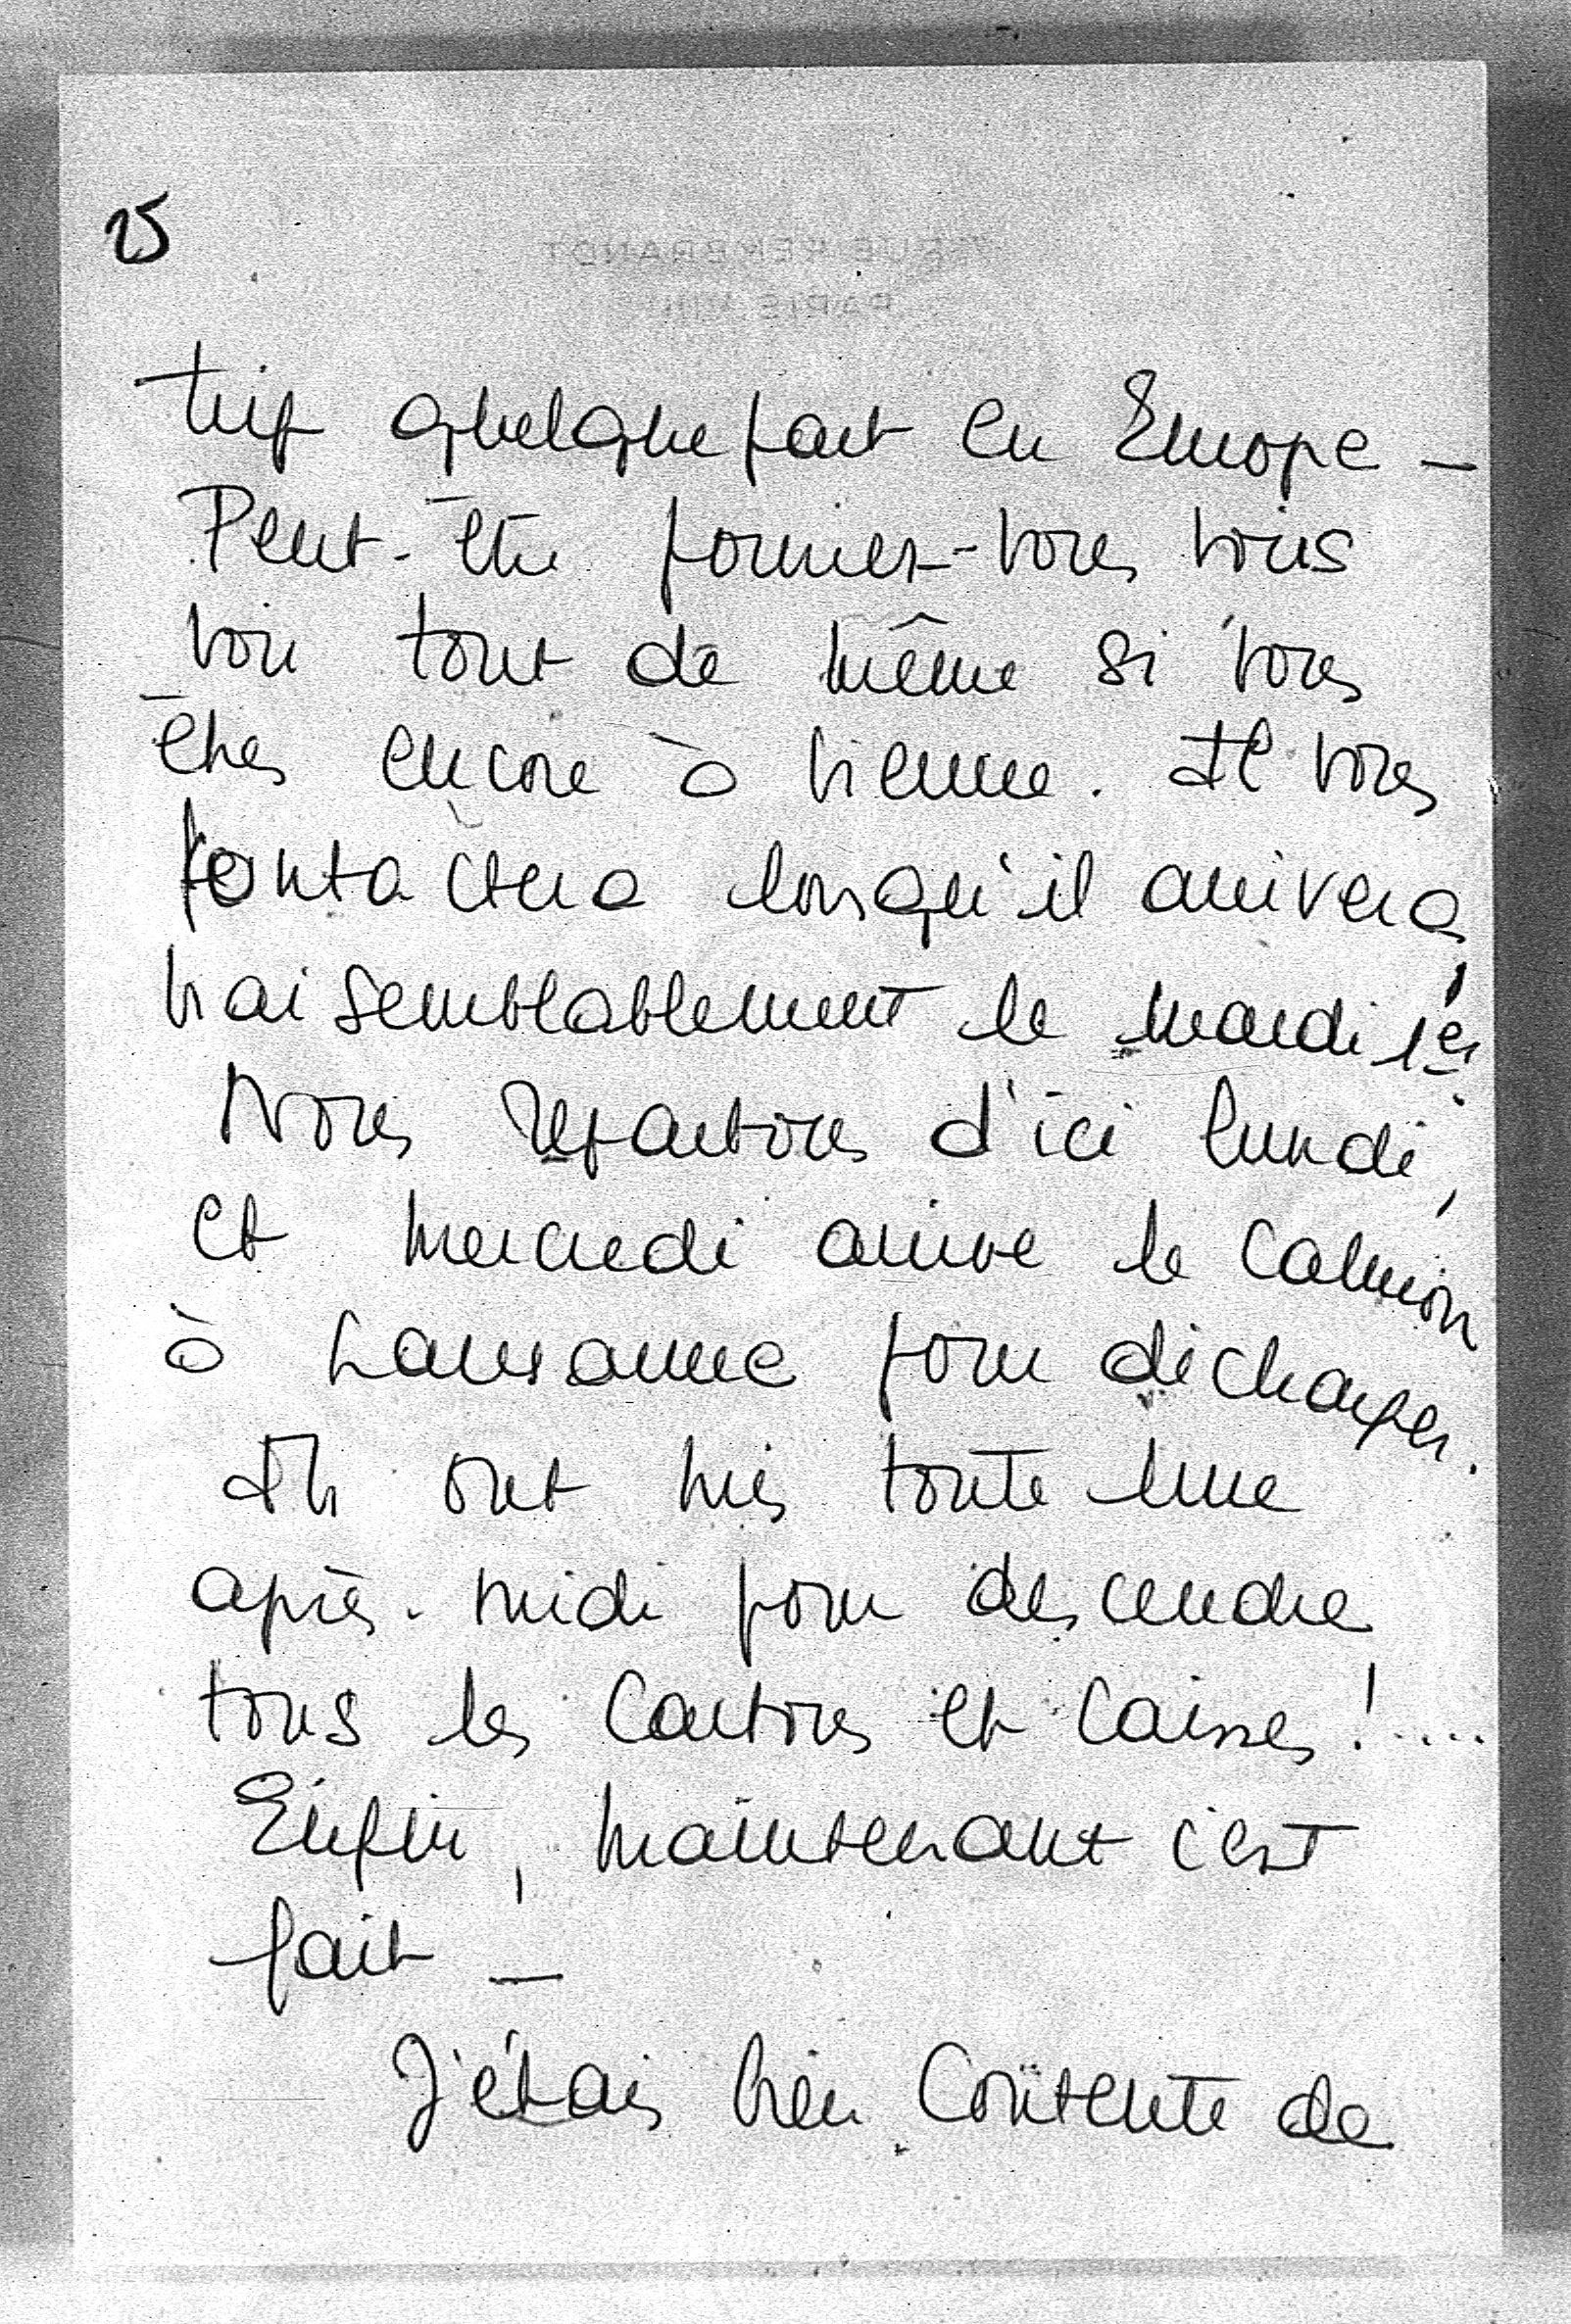 25
trip quelque part en Europe –
Peut-être pourriez-vous vous
voir tout de même si vous
êtes encore à Vienne. Il vous
contactera lorsqu'il arrivera,
vraisemblablement le mardi 1er
Nous repartons d'ici lundi,
et mercredi arrive le camion
à Lausanne pour décharger.
Ils ont mis toute une
après-midi pour descendre
tous les cartons et caisses !....
Enfin, maintenant c'est
fait –
J'étais bien contente de